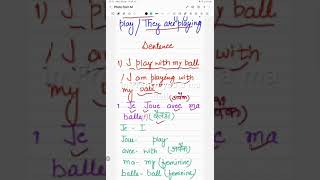 play / They are playing
Sentence
1) I play with my ball
/ I am playing with
my ball.
1 Je Joue avec ma
balle
Je - I
Joue - play
avec - with (अवैक)
ma - my (feminine)
balle - ball (feminine)